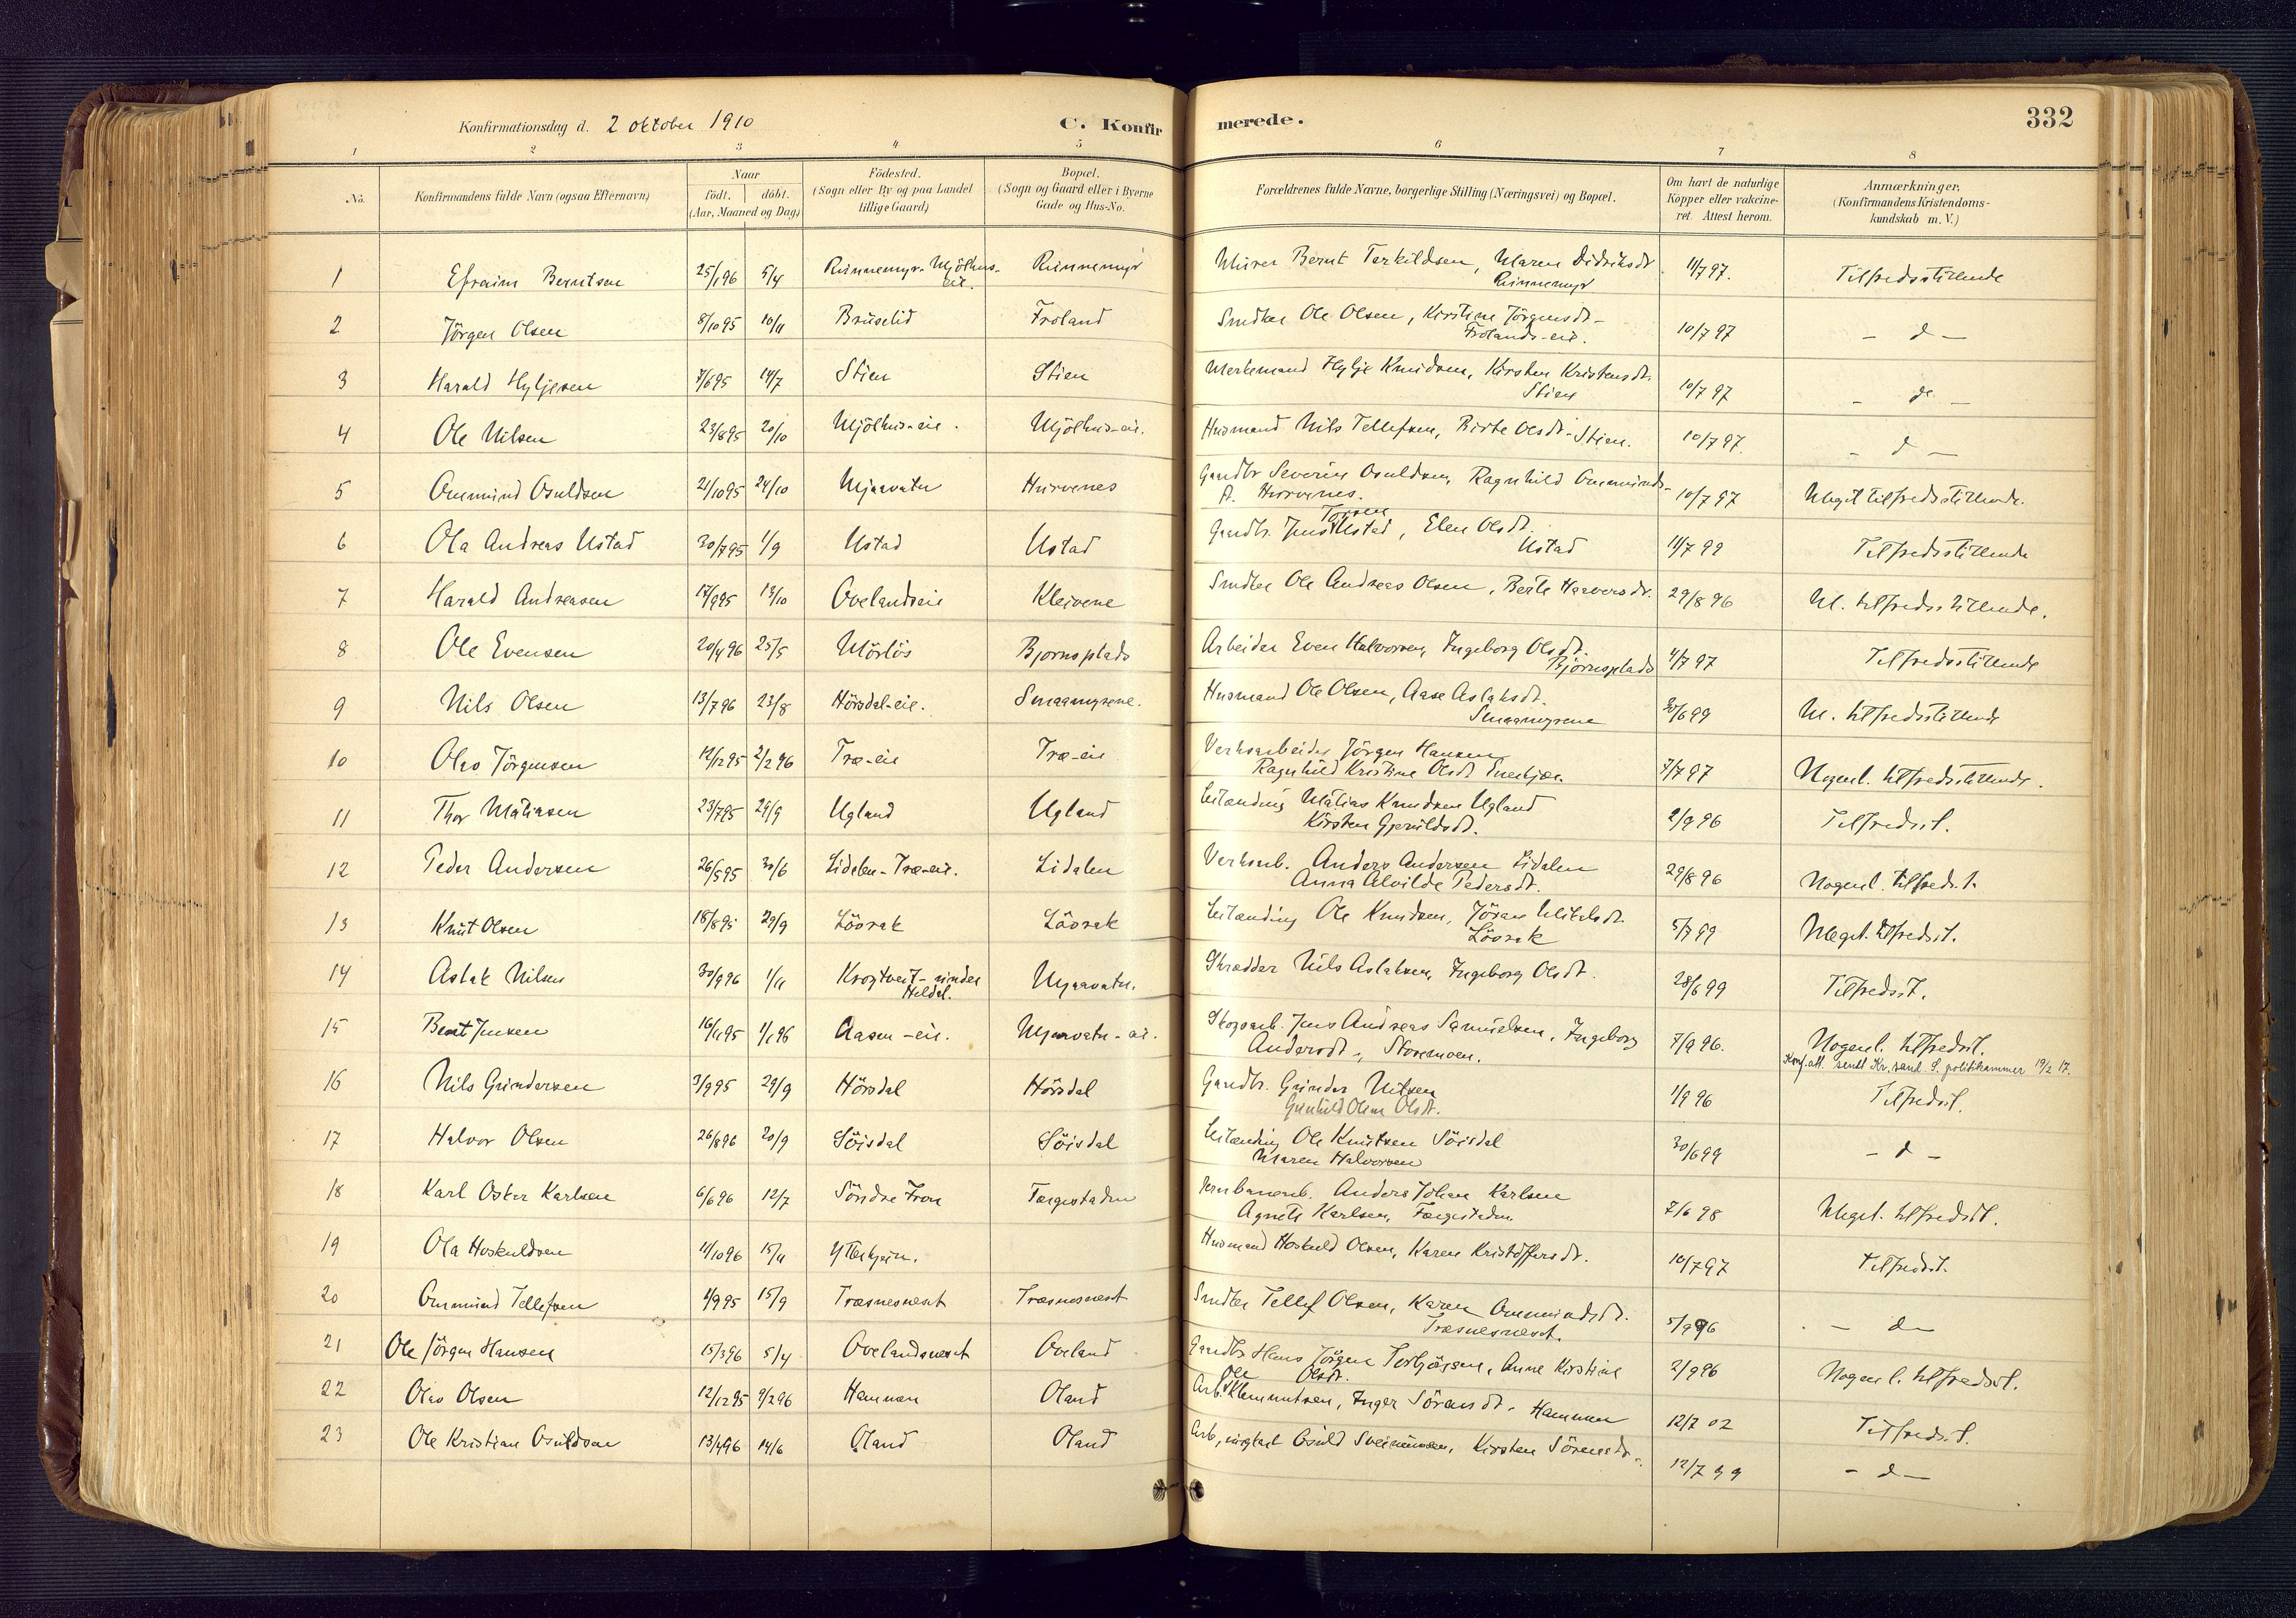 Konfirmationsdag d. 2 oktober 1910 C. Konfirmerede. 332
1 2 3 4 5 6 7 8
No. Konfirmandens fulde Navn (ogsaa Efternavn) Naar födt. döbt. (Aar, Maaned og Dag) Födested. (Sogn eller By og paa Landet tillige Gaard) Bopæl. (Sogn og Gaard eller i Byerne Gade og Hus-No. Forældrenes fulde Navne, borgerlige Stilling (Næringsvei) og Bopæl. Om havt de naturlige Kopper eller vakcineret. Attest herom. Anmærkninger. (Konfirmandens Kristendomskundskab m. V.)
1 Efraim Berntsen 25/1 96 5/4 Rinnemyr-Mjölhus-eie. Rinnemyr Murer Bernt Terkildsen, Maren Didriksdt. Rinnemyr 11/7 97. Tilfredsstillende
2 Jörgen Olsen 8/10 95 10/11 Bruselid Froland Smdker Ole Olsen, Kirstine Jörgensdt- Frolands-eie. 10/7 97 - d -
3 Harald Hyljesen 7/6 95 14/7 Stien Stien Hylje Knudsen, Kirsten Kristensdt. Stien 10/7 97 - do -
4 Ole Nilsen 23/8 95 20/10 Mjölhus-eie. Mjölhus-eie. Husmand Nils Tellefsen, Birte Olsdt-Stien. 10/7 97. - d -
5 Ommund Osuldsen 21/10 95 24/10 Mjaavatn Hurvenes Gaardbr Severin Osuldsen, Ragnhild Ommunds- d. Hurvenes. 10/7 97 Meget tilfredsstillende.
6 Ola Andreas Ustad 30/7 95 1/9 Ustad Ustad Gaardbr. Jens Ustad, Elen Olsdt. Ustad 11/7 99 Tilfredsstillende
7 Harald Andreasen 17/9 95 13/10 Ovelandseie Kleivene Ole Andreas Olsen, Berte Haavorsdt. 29/8 96 M. tilfredsstillende.
8 Ole Evensen 20/4 96 25/5 Mörlös Bjornsplads Arbeider Even Halvorsen, Ingeborg Olsdt. Bjornsplads 4/7 97 Tilfredsstillende
9 Nils Olsen 13/7 96 23/8 Hörsdal-eie. Smaamyrene. Husmand Ole Olsen, Aase Aslaksdt. Smaamyrene 30/6 99 M. tilfredsstillende
10 Olav Jörgensen 12/12 95 2/2 96 Træ-eie Træ-eie Verksarbeider Jörgen Hansen Ragnhild Kristine Olsdt 7/7 97 Nogenl. tilfredsstillende.
11 Thor Matiasen 23/7 95 29/9 Ugland Ugland Leilænding Matias Knudsen Ugland Kirsten Gjeruldsdt. 2/9 96 Tilfredsst.
12 Peder Andersen 26/5 95 30/6 Lidalen-Træ-eie. Lidalen Verksarb. Anders Andersen Lidalen Anna Alvilde Pedersdt. 29/8 96 Nogenl. tilfredst.
13 Knut Olsen 18/8 95 29/9 Lövrak Lövrak Leilænding Ole Knudsen, Jöran Lövrak 5/7 99 Meget. tilfredsst.
14 Aslak Nilsen 30/9 96 1/11 Krogtveit-under Heldal. Mjaavatn. Skrædder Nils Aslaksen, Ingeborg Olsdt. 28/6 99 Tilfredsst.
15 Bent Jensen 16/11 95 1/1 96 Aasen-eie. Mjaavatn-eie. Skogsarb. Jens Andreas Samuelsen, Ingeborg Andersdt-, Storemoen. 7/9 96. Nogenl. tilfredsst. Konf.att. sendt Kr.sand S. politikammer 19/2 17.
16 Nils Gundersen 3/9 95 29/9 Hörsdal Hörsdal Gaardbr. Gunder Nilsen Gunhild Olsdt. 1/9 96 Tilfredsst.
17 Halvor Olsen 26/8 96 20/9 Söisdal Söisdal Leilænding Ole Knutsen Söisdal Maren Halvorsen 30/6 99 - d -
18 Karl Oskar Karlsen 6/6 96 12/7 Söndre Fron Fargestaden Jernbanearb. Anders Johan Karlsen Agnete Karlsen, 7/6 98 Meget. tilfredsst.
19 Ola Hoskuldsen 11/10 96 15/11 Husmand Hoskuld Olsen, Karen Kristoffersdt. 10/7 97 tilfredsst.
20 Ommund Tellefsen 1/9 95 15/9 Træsnesneset Træsnesneset Smdker Tellef Olsen, Karen Ommundsdt. Træsnesneset. 5/9 96 - d -
21 Ole Jörgen Hansen 15/3 96 5/4 Ovelandsneset Oveland Gaardbr Hans Jörgen Torbjörnsen, Anne Kirstine Olsdt. 2/9 96 Nogenl. tilfredsst.
22 Olav Olsen 12/12 95 9/2 96 Hammen Oland Arb. Ole Klemmetsen, Inger Sörensdt- Hammen 12/7 02 Tilfredsst.
23 Ole Kristian Osuldsen 13/4 96 14/6 Oland Oland Arb, Osuld Sveinunsen, Kirsten Sörensdt-. 12/7 99 - d -